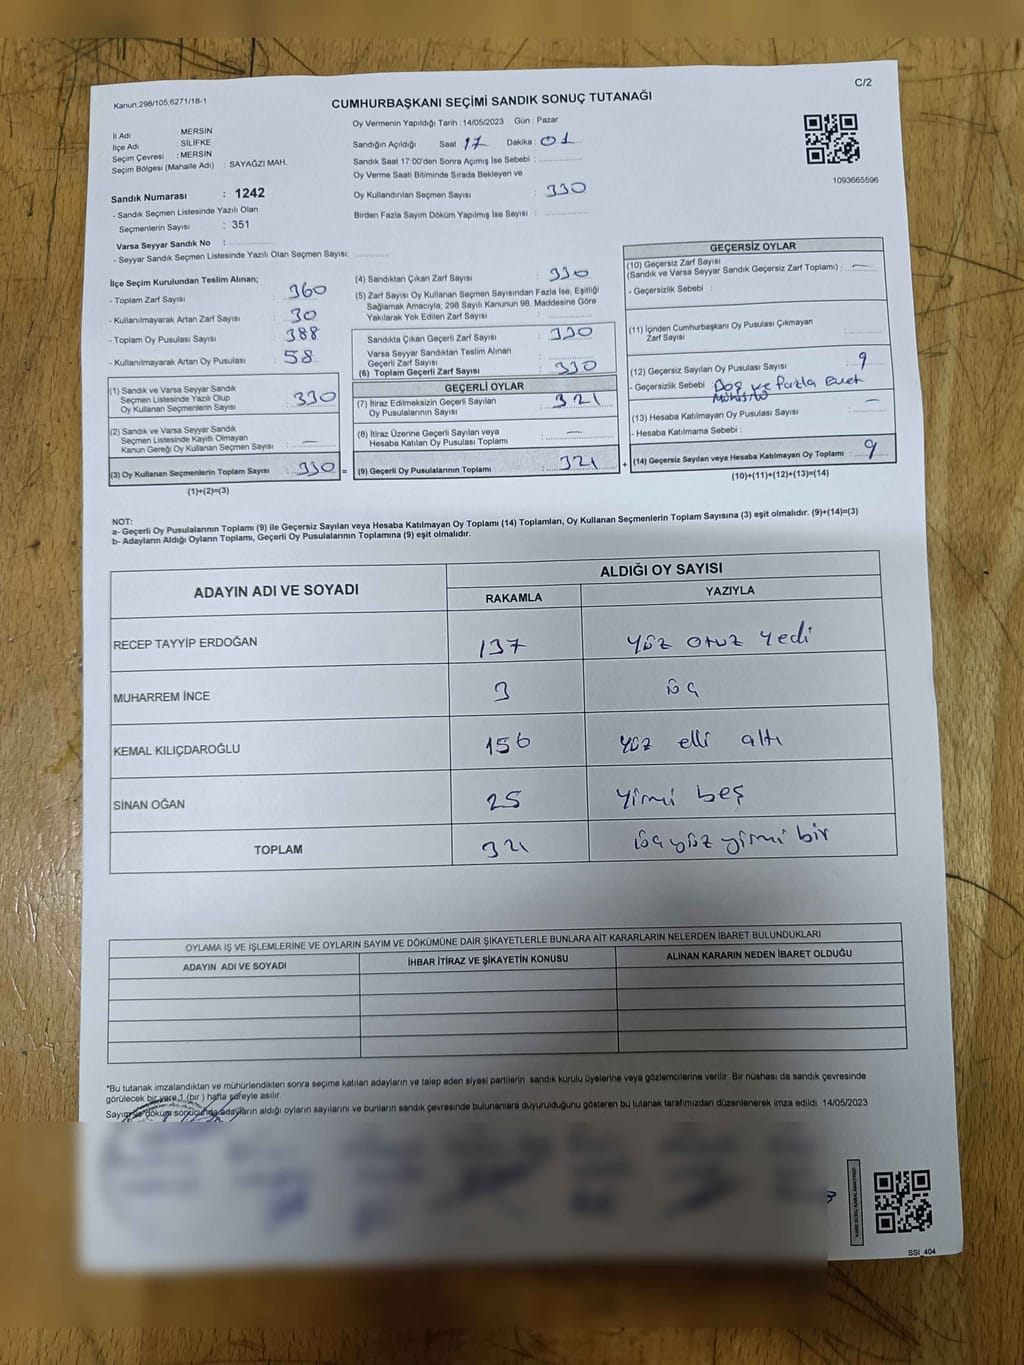 Kanun;298/105;6271/18-1
C/2
CUMHURBAŞKANI SEÇİMİ SANDIK SONUÇ TUTANAĞI
İl Adı : MERSİN
İlçe Adı : SİLİFKE
Seçim Çevresi : MERSİN
Seçim Bölgesi (Mahalle Adı) : SAYAĞZI MAH.
Sandık Numarası : 1242
- Sandık Seçmen Listesinde Yazılı Olan
Seçmenlerin Sayısı : 351
Varsa Seyyar Sandık No :
- Seyyar Sandık Seçmen Listesinde Yazılı Olan Seçmen Sayısı:
Oy Vermenin Yapıldığı Tarih : 14/05/2023 Gün : Pazar
Sandığın Açıldığı Saat 17 Dakika : 01
Sandık Saat 17:00'den Sonra Açımış İse Sebebi :
Oy Verme Saati Bitiminde Sırada Bekleyen ve
Oy Kullandırılan Seçmen Sayısı : 330
Birden Fazla Sayım Döküm Yapılmış İse Sayısı :
1093665596
İlçe Seçim Kurulundan Teslim Alınan;
- Toplam Zarf Sayısı : 360
- Kullanılmayarak Artan Zarf Sayısı : 30
- Toplam Oy Pusulası Sayısı : 388
- Kullanılmayarak Artan Oy Pusulası : 58
(1) Sandık ve Varsa Seyyar Sandık
Seçmen Listesinde Yazılı Olup
Oy Kullanan Seçmenlerin Sayısı : 330
(2) Sandık ve Varsa Seyyar Sandık
Seçmen Listesinde Kayıtlı Olmayan
Kanun Gereği Oy Kullanan Seçmen Sayısı : —
(3) Oy Kullanan Seçmenlerin Toplam Sayısı : 330 =
(1)+(2)=(3)
(4) Sandıktan Çıkan Zarf Sayısı : 330
(5) Zarf Sayısı Oy Kullanan Seçmen Sayısından Fazla İse, Eşitliği
Sağlamak Amacıyla; 298 Sayılı Kanunun 98. Maddesine Göre
Yakılarak Yok Edilen Zarf Sayısı :
Sandıkta Çıkan Geçerli Zarf Sayısı : 330
Varsa Seyyar Sandıktan Teslim Alınan
Geçerli Zarf Sayısı :
(6) Toplam Geçerli Zarf Sayısı : 330
GEÇERLİ OYLAR
(7) İtiraz Edilmeksizin Geçerli Sayılan
Oy Pusulalarının Sayısı : 321
(8) İtiraz Üzerine Geçerli Sayılan veya
Hesaba Katılan Oy Pusulası Toplamı : —
(9) Geçerli Oy Pusulalarının Toplamı : 321 +
GEÇERSİZ OYLAR
(10) Geçersiz Zarf Sayısı
(Sandık ve Varsa Seyyar Sandık Geçersiz Zarf Toplamı) : —
- Geçersizlik Sebebi :
(11) İçinden Cumhurbaşkanı Oy Pusulası Çıkmayan
Zarf Sayısı :
(12) Geçersiz Sayılan Oy Pusulası Sayısı : 9
- Geçersizlik Sebebi : Boş ve fazla Evet
(13) Hesaba Katılmayan Oy Pusulası Sayısı : —
- Hesaba Katılmama Sebebi :
(14) Geçersiz Sayılan veya Hesaba Katılmayan Oy Toplamı : 9
(10)+(11)+(12)+(13)=(14)
NOT:
a- Geçerli Oy Pusulalarının Toplamı (9) ile Geçersiz Sayılan veya Hesaba Katılmayan Oy Toplamı (14) Toplamları, Oy Kullanan Seçmenlerin Toplam Sayısına (3) eşit olmalıdır. (9)+(14)=(3)
b- Adayların Aldığı Oyların Toplamı, Geçerli Oy Pusulalarının Toplamına (9) eşit olmalıdır.
ADAYIN ADI VE SOYADI
ALDIĞI OY SAYISI
RAKAMLA YAZIYLA
RECEP TAYYİP ERDOĞAN 137 Yüz otuz yedi
MUHARREM İNCE 3 üç
KEMAL KILIÇDAROĞLU 156 yüz elli altı
SİNAN OĞAN 25 Yirmi beş
TOPLAM 321 üçyüz yirmi bir
OYLAMA İŞ VE İŞLEMLERİNE VE OYLARIN SAYIM VE DÖKÜMÜNE DAİR ŞİKAYETLERLE BUNLARA AİT KARARLARIN NELERDEN İBARET BULUNDUKLARI
ADAYIN ADI VE SOYADI İHBAR İTİRAZ VE ŞİKAYETİN KONUSU ALINAN KARARIN NEDEN İBARET OLDUĞU
*Bu tutanak imzalandıktan ve mühürlendikten sonra seçime katılan adayların ve talep eden siyasi partilerin sandık kurulu üyelerine veya gözlemcilerine verilir. Bir nüshası da sandık çevresinde
görülecek bir yere 1 (bir ) hafta süreyle asılır.
Sayım ve döküm sonucunda adayların aldığı oyların sayılarını ve bunların sandık çevresinde bulunanlara duyurulduğunu gösteren bu tutanak tarafımızdan düzenlenerek imza edildi. 14/05/2023
SSI_404